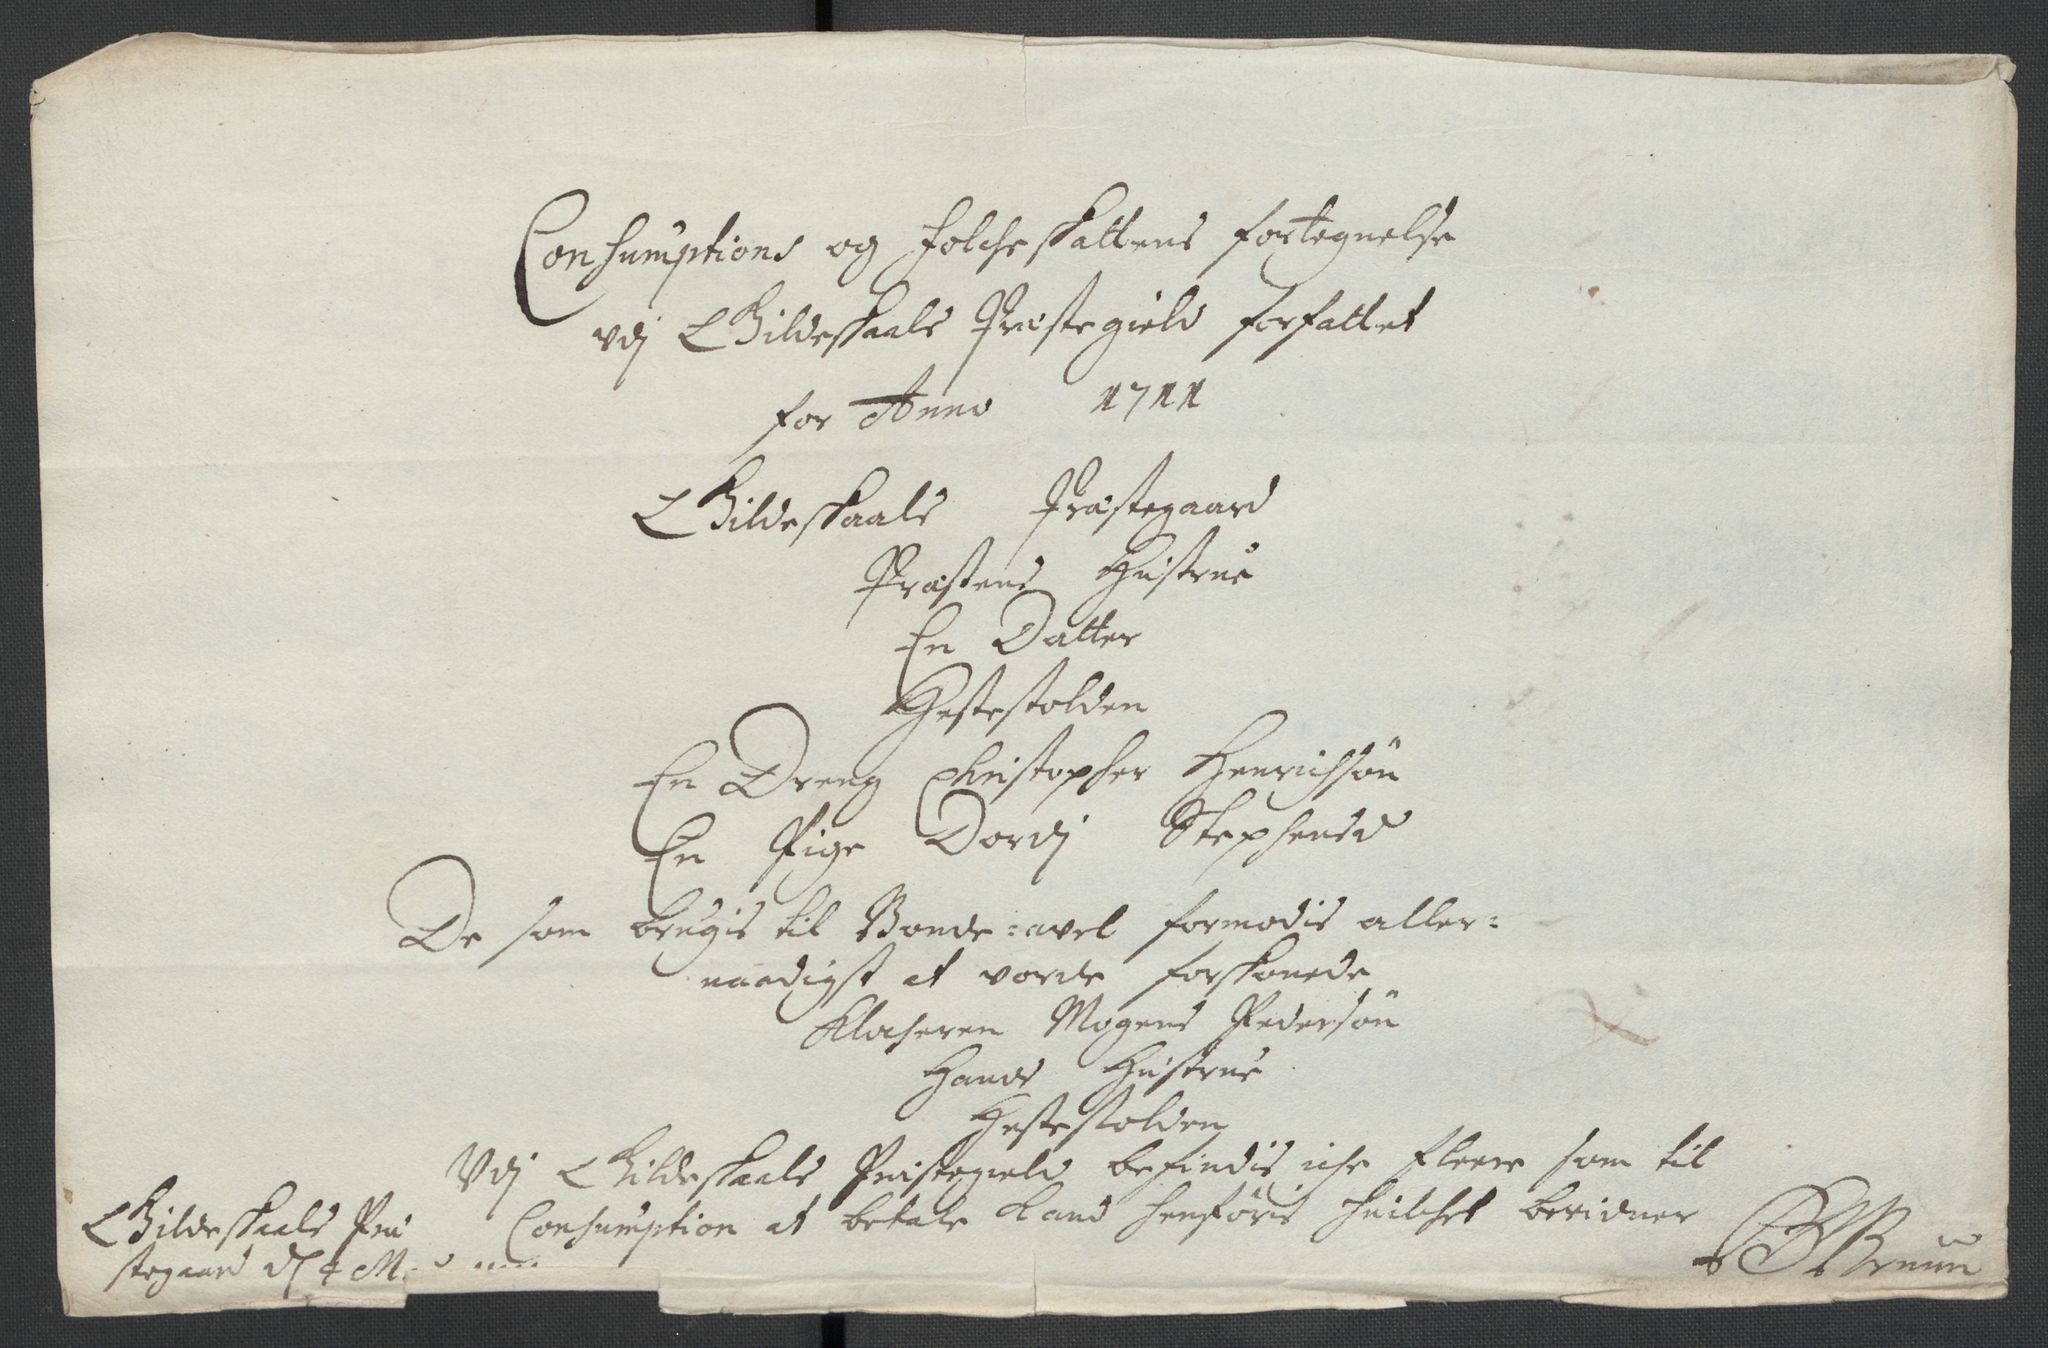 Consumptions og Folcheskattens fortegnelse
vdj Gildeskaals Præstegield forfattet
for Anno 1711
Gildeskaals Præstegaard
Præstens Hustrue
En Datter
Hestestolden
En Dreng Christopher Henrichsøn
En Pige Dordj Stephensd
De som brugis til Bonde-avel formodis aller:
naadigst at vorde forskonede
Klocheren Mogens Pedersøn
Hans Hustrue
Hestestolden
Vdj Gildeskaals Præstegield befindis iche fleere som til
Consumption at betale kand henføris huilchet bevidner
Gildeskaals Præ
stegaard d 4
Bruun